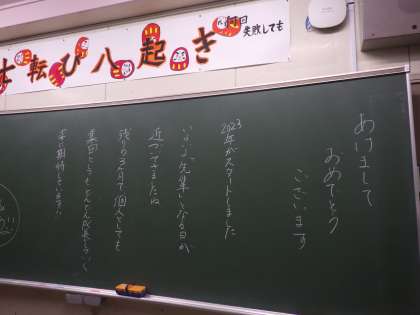 転び八起き
何回
失敗しても
あけまして
おめでとう
ございます
2023
年がスタートしました
いよいよ先輩になる日が
近づいてきましたね
残りの3ヶ月で個人としても
集団としてもどんどん成長していく
事に期待しています!